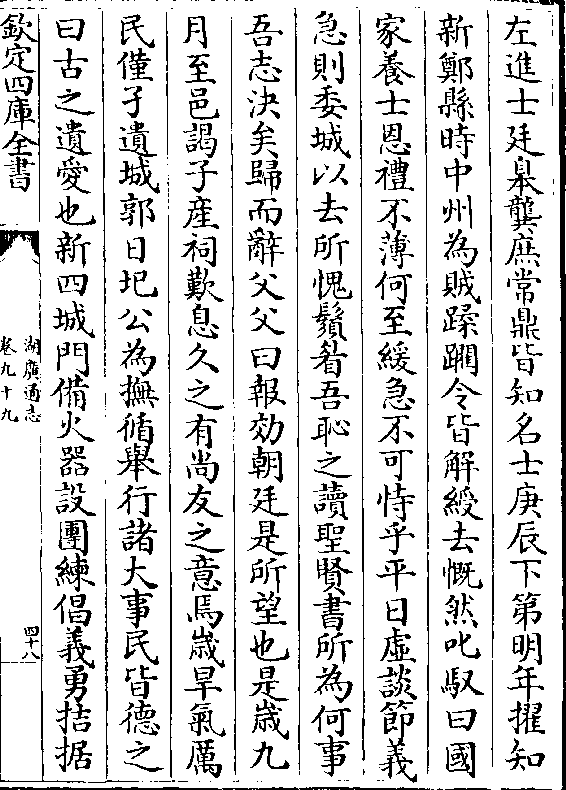 左進士廷臯龔庶常鼎皆知名士庚辰下第明年擢知
新鄭縣時中州為賊蹂躙令皆解綬去慨然叱馭曰國
家養士恩禮不薄何至緩急不可恃乎平日虛談節義
急則委城以去所愧鬚眉吾恥之讀聖賢書所為何事
吾志決矣歸而辭父父曰報効朝廷是所望也是歲九
月至邑謁子產祠歎息久之有尚友之意焉歲旱氣厲
民僅孑遺城郭日圮公為撫循舉行諸大事民皆德之
曰古之遺愛也新四城門備火器設團練倡義勇拮据
欽定四庫全書
湖廣通志
卷九十九
四十八